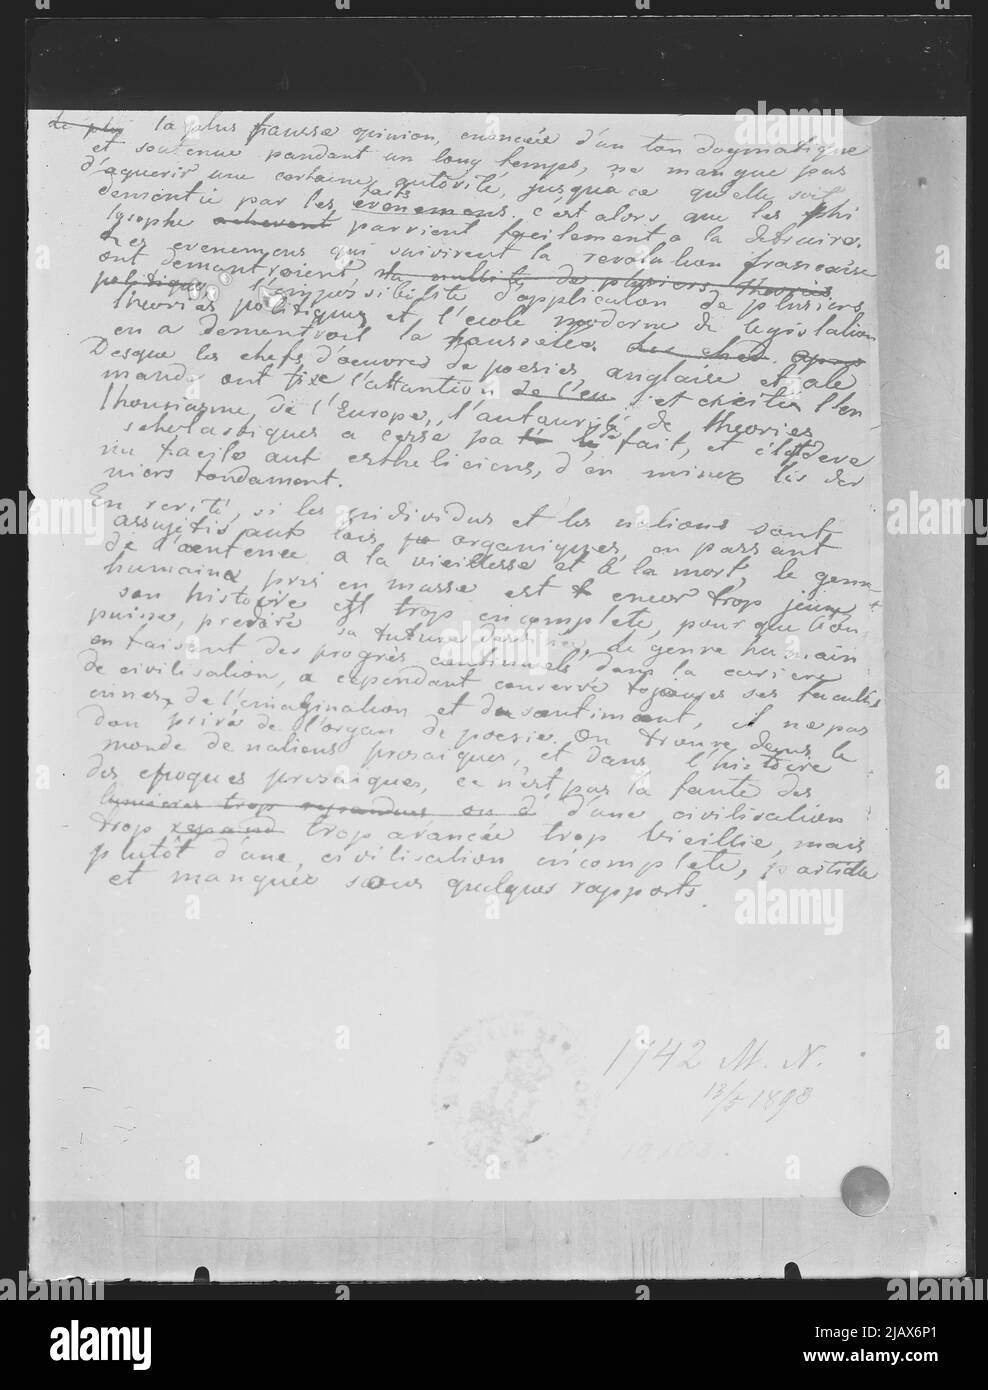 de plus la plus fausse opinion, enoncée d'un ton dogmatique
et soutenue pandant un long temps, ne manque pas
d'aquerir une certaine autorité, jusqua ce qu'elle soit
dementie par les faits evenemens. c'est alors que les phi
lysophe achevent parvient facilement a la detruire.
Les evenemens qui suivirent la revolution francaise
ont demantroient la nullité de plusiers theories
politiques, l'impossibilité d'application de plusiers
theories politiques et l'ecole moderne de legislation
en a demontroit la faussetée.
Desque les chefs d'oeuvres de poesies anglaise et ale
mande ont fixé l'attantion de l'eu et excité l'en
thousiasme, de l'Europe, l'autaurité de theories
scholastiques a cessé pa le fait, et il deve
nu facile aut estheticiens, d'en miner les der
niers fondament.
En verité, si les individus et les nations sont
assujétis aut lois organiques, en passant
de l'aentence a la vieillesse et à la mort, le genre
humaine pris en masse est encor trop jeune
son histoire est trop encomplete, pour que l'on
puisse, predire sa future destinée, de genre humain
en faisant des progrès continuels dans la cariere
de civilisation, a cependant conservé toujours ses facultés
innés, de l'imagination et du santiment, il ne pas
don privé de l'organ de poesie. On trouve dans le
monde de nations prosaiques, et dans l'histoire
des epoques prosaiques, ce n'est pas la faute des
lumieres trop repandues ou d d'une civilisation
trop repand trop avancée trop vieillie, mais
plutôt d'une, civilisation incomplete, partielle
et manquée sous quelques rapports.
1742 M. N.
13/5 1890
alamy
Image ID: 2JAX6P1
www.alamy.com